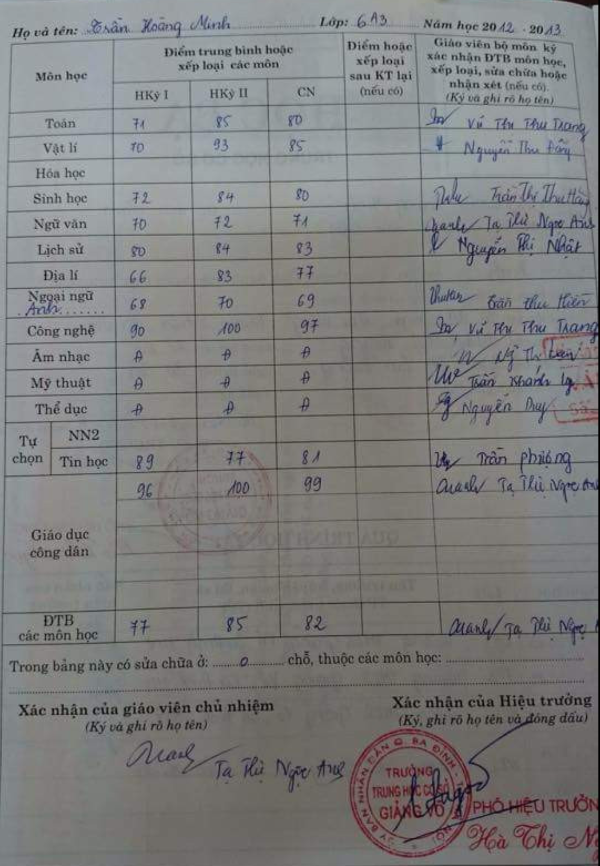 Họ và tên: Trần Hoàng Minh Lớp: 6A3 Năm học 2012 - 2013
Môn học
Điểm trung bình hoặc
xếp loại các môn
HKỳ I HKỳ II CN
Điểm hoặc
xếp loại
sau KT lại
(nếu có)
Giáo viên bộ môn ký
xác nhận ĐTB môn học,
xếp loại, sửa chữa hoặc
nhận xét (nếu có).
(Ký và ghi rõ họ tên)
Toán 71 85 80 Vũ Thị Thu Trang
Vật lí 70 93 85 Nguyễn Thu
Hóa học
Sinh học 72 84 80 Trần Thị Thu
Ngữ văn 70 72 71 Tạ Thị Ngọc Anh
Lịch sử 80 84 83 Nguyễn Thị Nhật
Địa lí 66 83 77
Ngoại ngữ
Anh 68 70 69 Trần Thu Hiền
Công nghệ 90 100 97 Vũ Thị Thu Trang
Âm nhạc Đ Đ Đ
Mỹ thuật Đ Đ Đ Trần Khánh
Thể dục Đ Đ Đ Nguyễn Duy
Tự
chọn
NN2
Tin học 89 77 81 Trần Phương
Giáo dục
công dân
96 100 99 Tạ Thị Ngọc Anh
ĐTB
các môn học
77 85 82 Tạ Thị Ngọc
Trong bảng này có sửa chữa ở: 0 chỗ, thuộc các môn học:
Xác nhận của giáo viên chủ nhiệm
(Ký và ghi rõ họ tên)
Tạ Thị Ngọc Anh
Xác nhận của Hiệu trưởng
(Ký, ghi rõ họ tên và đóng dấu)
ỦY BAN NHÂN DÂN Q. BA ĐÌNH
TRƯỜNG
TRUNG HỌC CƠ SỞ
GIẢNG VÕ
PHÓ HIỆU TRƯỞN
Hà Thị